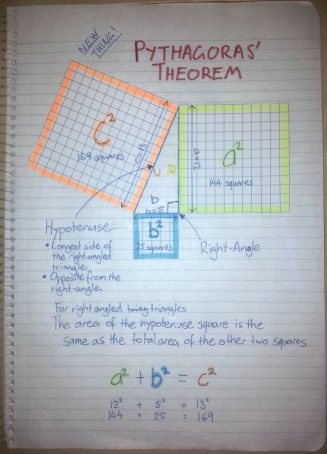 NEW
THING!
PYTHAGORAS'
THEOREM
c²
169 squares
c=13
c
a
a=12
a²
144 squares
b
b=5
b²
25 squares
Hypotenuse:
• Longest side of
the right-angled
triangle.
• Opposite from the
right-angle.
Right-Angle
For right angled triangles
The area of the hypotenuse square is the
same as the total area of the other two squares
a² + b² = c²
12² + 5² = 13²
144 + 25 = 169